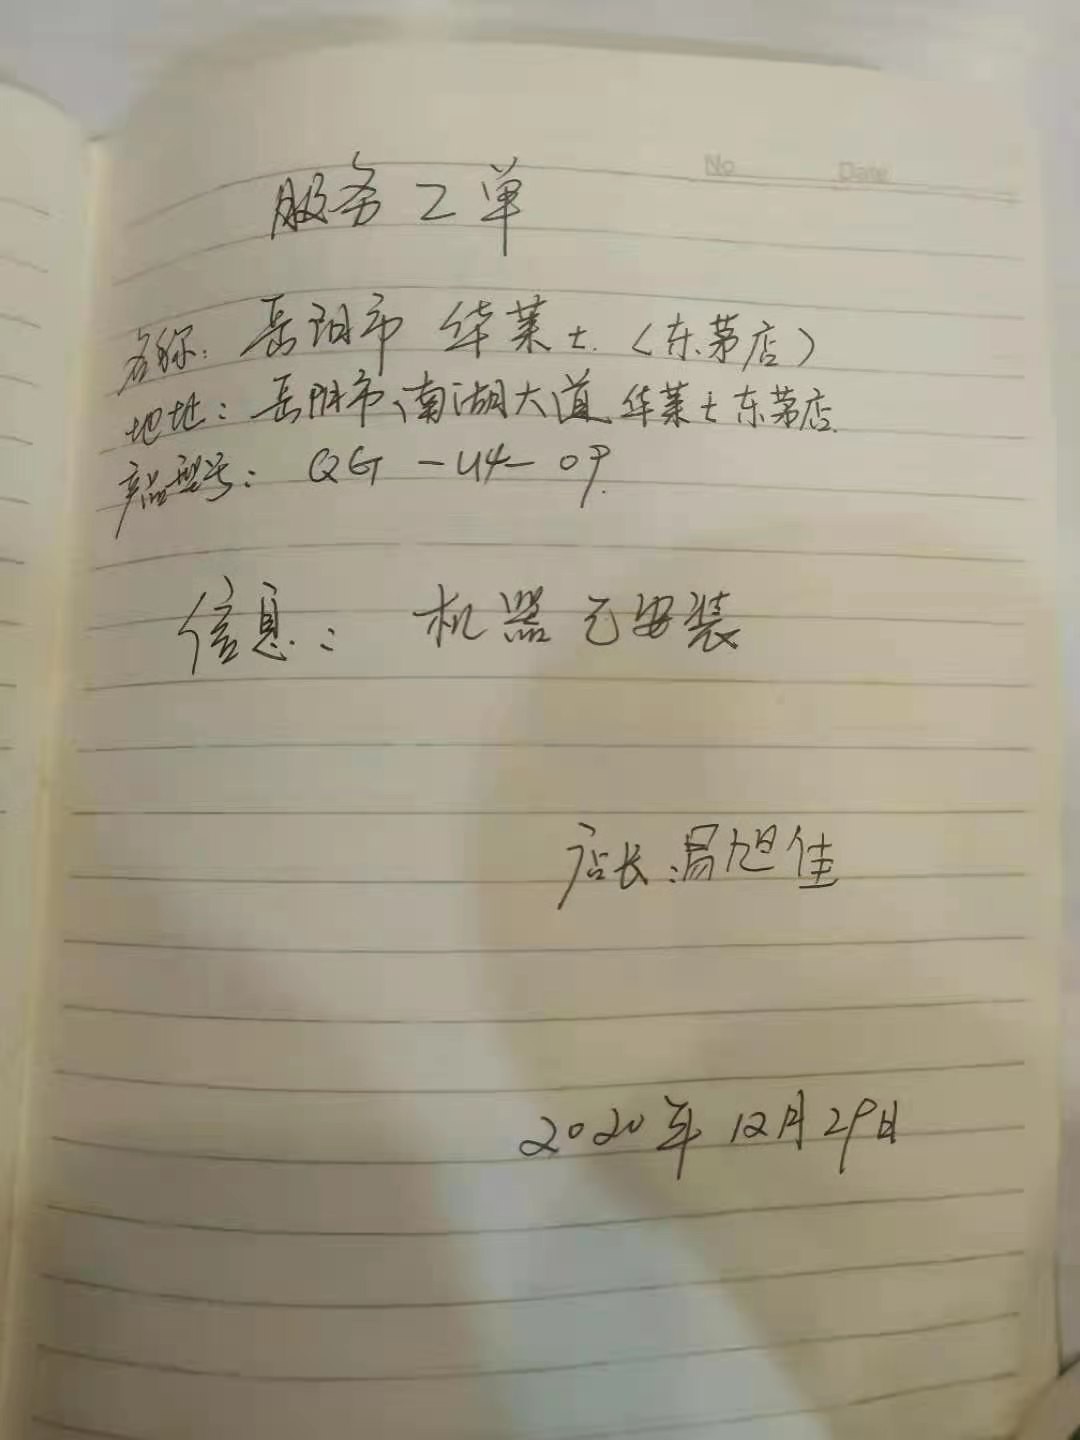 No Date
服务工单
名称：岳阳市 华莱士（东茅店）
地址：岳阳市南湖大道华莱士东茅店
产品型号：QG-U4-09
信息： 机器已安装
店长：易旭佳
2020年12月29日